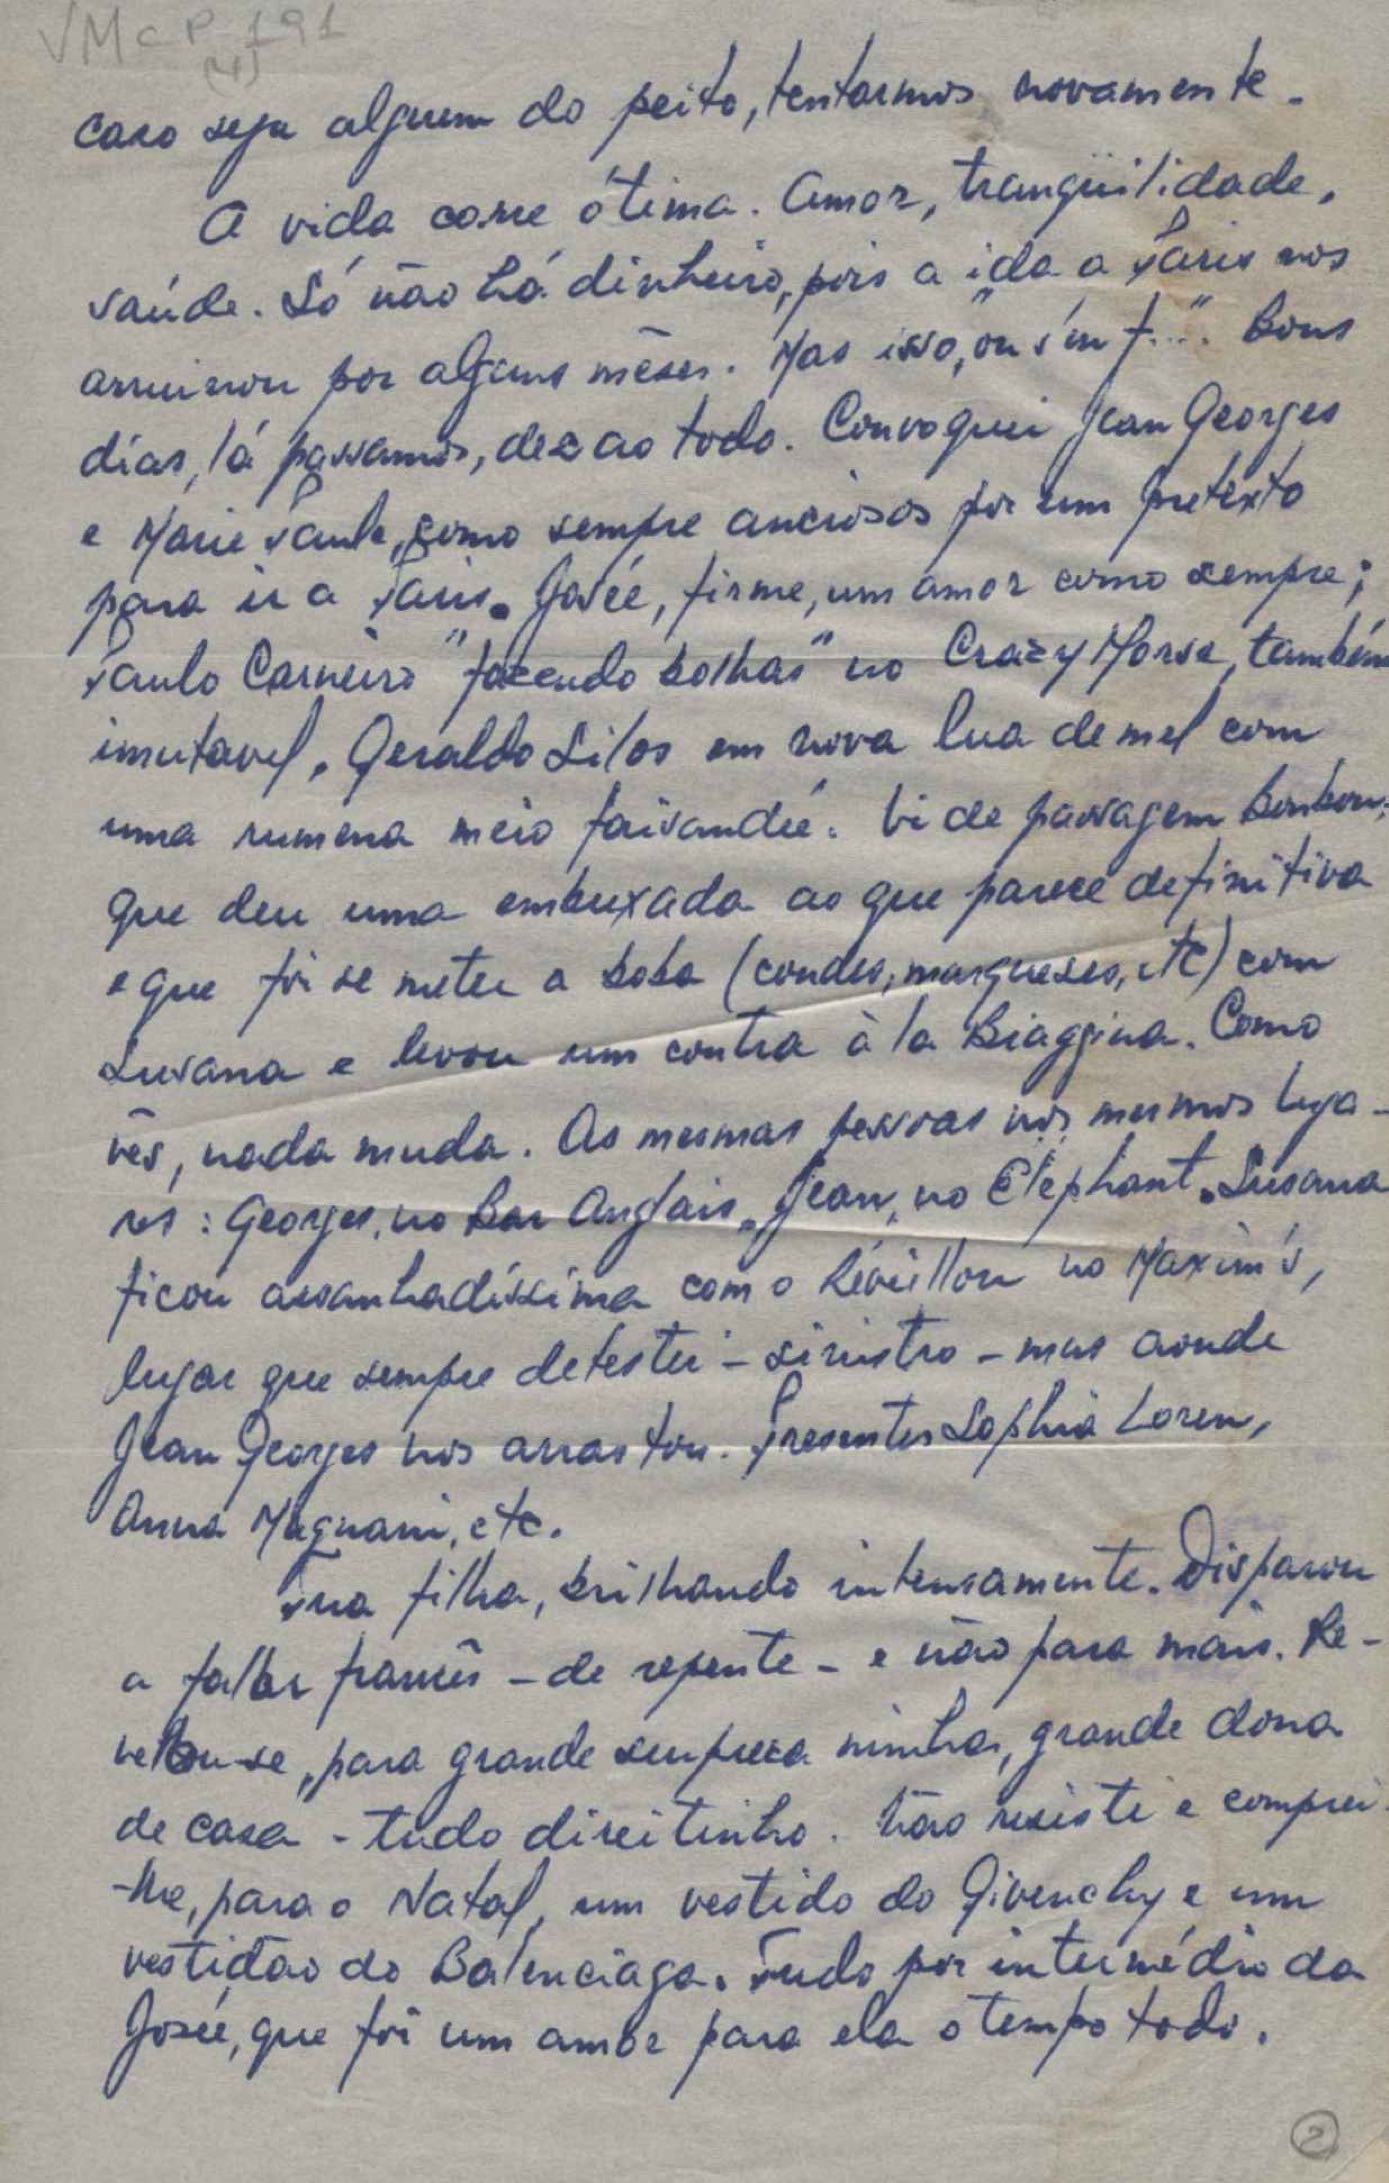 VMcP 191
(4)
caso seja alguem do peito, tentarmos novamente.
A vida corre ótima. Amor, tranqüilidade,
saúde. Só não há dinheiro, pois a ida a Paris nos
arruinou por alguns mêses. Mas isso, "on s'en f...". Bons
dias, lá passamos, dez ao todo. Convoquei Jean Georges
e Marie Paule, como sempre anciosos por um pretexto
para ir a Paris. Josée, firme, um amor como sempre;
Paulo Carneiro "fazendo bolhas" no Crazy Horse, também
imutavel, Geraldo Silos em nova lua de mel com
uma rumena meio faisandée. Vi de passagem Bonbon,
que deu uma embuxada ao que parece definitiva
e que foi se meter a boba (condes, marqueses, etc) com
Susana e levou um contra à la Biaggina. Como
vês, nada muda. As mesmas pessoas nos mesmos luga-
res: Georges, no Bar Anglais, Jean, no Elephant. Susana
ficou assanhadíssima com o Réveillon no Maxim's,
lugar que sempre detestei - sinistro - mas aonde
Jean Georges nos arrastou. Presentes Sophia Loren,
Anna Magnani, etc.
Tua filha, brilhando intensamente. Disparou
a falar francês - de repente - e não para mais. Re-
velou-se, para grande surpreza minha, grande dona
de casa - tudo direitinho. Não resisti e comprei-
-lhe, para o Natal, um vestido do Givenchy e um
vestidão do Balenciaga. Tudo por intermédio da
Josée, que foi um amor para ela o tempo todo.
2